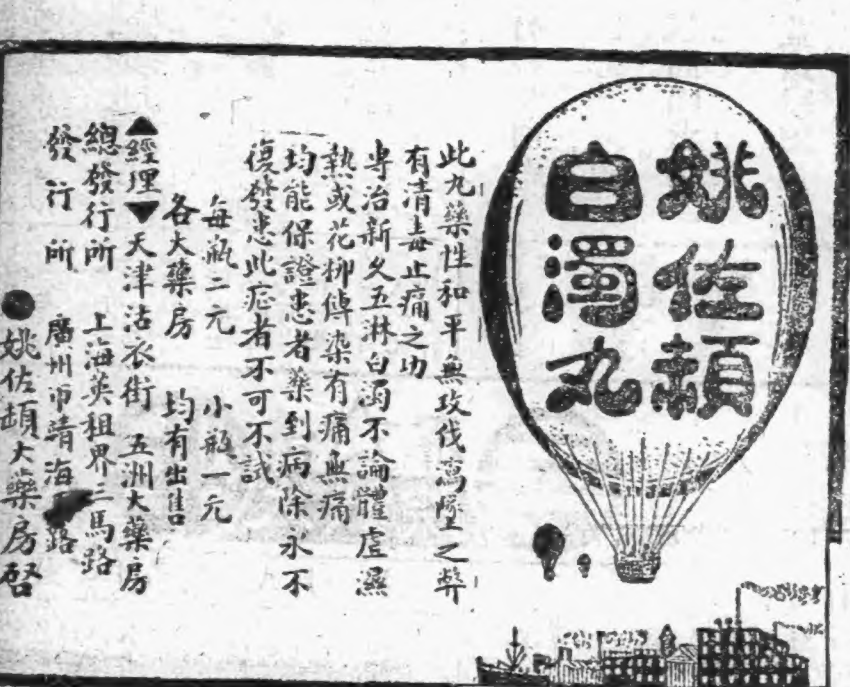 姚佐頓
白濁丸
此丸藥性和平無攻伐瀉墜之弊
有清毒止痛之功
專治新久五淋白濁不論體虛濕
熱或花柳傳染有痛無痛
均能保證患者藥到病除永不
復發患此症者不可不試
每瓶二元 小瓶一元
各大藥房 均有出售
▲經理▼天津沽衣街 五洲大藥房
總發行所 上海英租界三馬路
發行所 廣州市靖海路
●姚佐頓大藥房啓